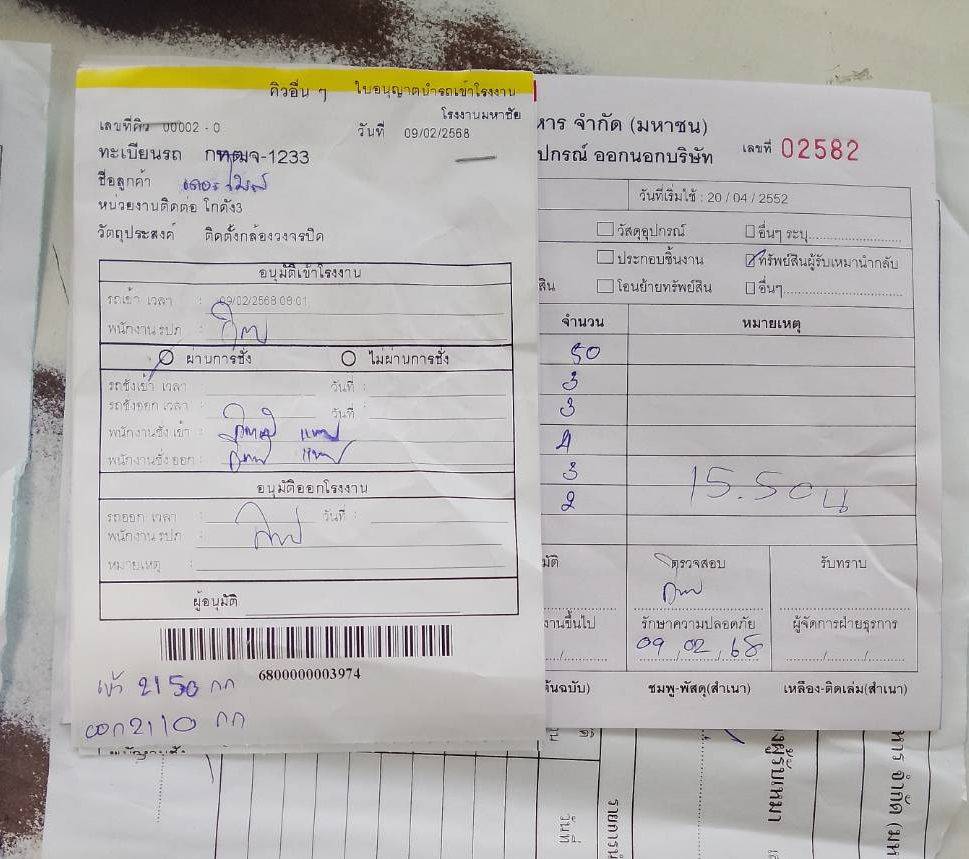 คิวอื่น ๆ ใบอนุญาตนำรถเข้าโรงงาน
โรงงานมหาชัย
เลขที่คิว 00002 - 0 วันที่ 09/02/2568
ทะเบียนรถ กทฒจ-1233
ชื่อลูกค้า
หน่วยงานติดต่อ โกดัง3
วัตถุประสงค์ ติดตั้งกล้องวงจรปิด
อนุมัติเข้าโรงงาน
รถเข้า เวลา : 09/02/2568 08:01
พนักงาน รปภ. :
ผ่านการชั่ง ไม่ผ่านการชั่ง
รถชั่งเข้า เวลา : วันที่ :
รถชั่งออก เวลา : วันที่ :
พนักงานชั่ง เข้า :
พนักงานชั่ง ออก :
อนุมัติออกโรงงาน
รถออก เวลา : วันที่ :
พนักงาน รปภ. :
หมายเหตุ :
ผู้อนุมัติ
6800000003974
เข้า 2150 กก
ออก 2110 กก
หาร จำกัด (มหาชน)
ปกรณ์ ออกนอกบริษัท เลขที่ 02582
วันที่เริ่มใช้ : 20 / 04 / 2552
วัสดุอุปกรณ์ อื่นๆ ระบุ
ประกอบชิ้นงาน ทรัพย์สินผู้รับเหมานำกลับ
สิน โอนย้ายทรัพย์สิน อื่นๆ
จำนวน หมายเหตุ
50
3
3
4
3 15.50 น
2
มัติ ตรวจสอบ รับทราบ
งานขึ้นไป รักษาความปลอดภัย ผู้จัดการฝ่ายธุรการ
09 / 02 / 68
ต้นฉบับ) ชมพู-พัสดุ(สำเนา) เหลือง-ติดเล่ม(สำเนา)
วันที่
รายการ
ผู้รับเหมา
หาร จำกัด (มห